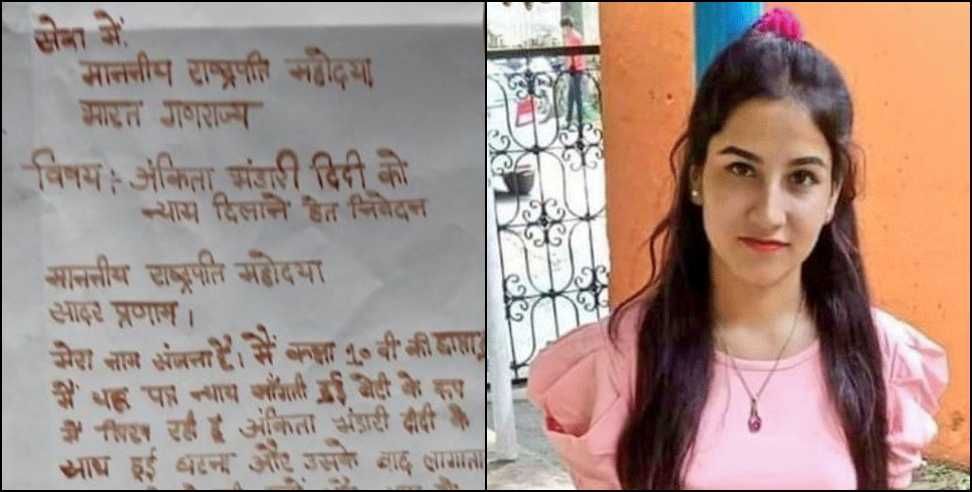 सेवा में,
माननीय राष्ट्रपति महोदया
भारत गणराज्य
विषय :- अंकिता भंडारी दिदी को
न्याय दिलाने हेतु निवेदन
माननीय राष्ट्रपति महोदया
सादर प्रणाम ।
मेरा नाम संजना है। मैं कक्षा 10 वी की छात्रा हूँ
मैं यह पत्र न्याय माँगती हुई बेटी के रूप
में लिख रही हूँ अंकिता भंडारी दीदी के
साथ हुई घटना और उसके बाद लगातार